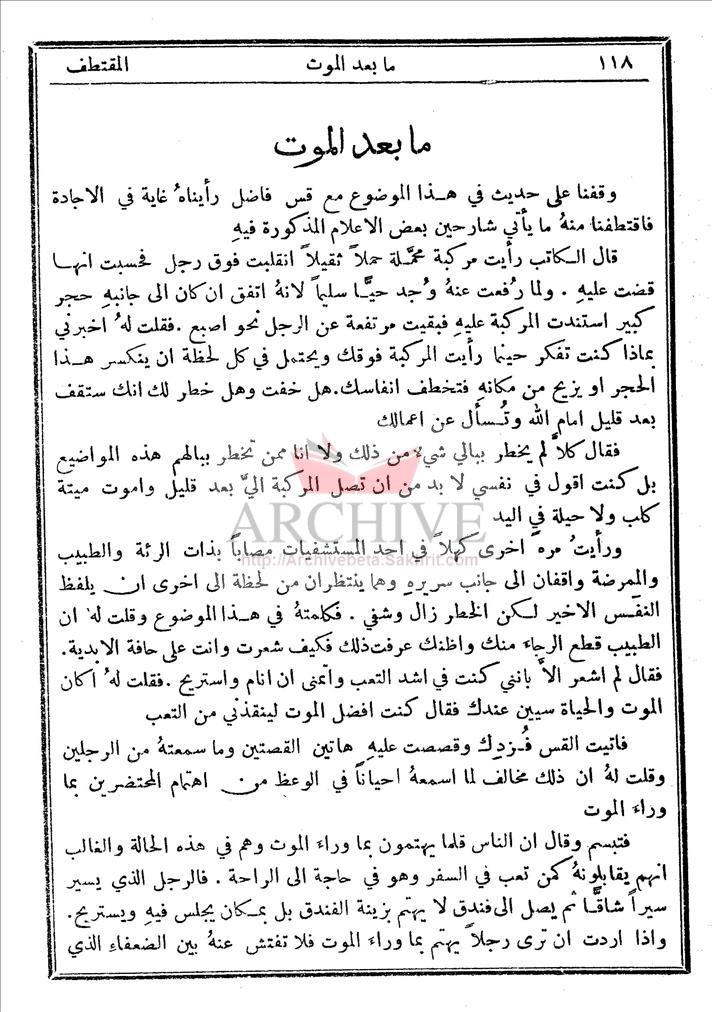 ١١٨ ما بعد الموت المقتطف
ما بعد الموت
وقفنا على حديث في هذا الموضوع مع قس فاضل رأيناهُ غاية في الاجادة
فاقتطفنا منهُ ما يأتي شارحين بعض الاعلام المذكورة فيهِ
قال الكاتب رأيت مركبة محمَّلة حملاً ثقيلاً انقلبت فوق رجل فحسبت انها
قضت عليهِ . ولما رُفعت عنهُ وُجد حيًّا سليماً لانهُ اتفق ان كان الى جانبهِ حجر
كبير استندت المركبة عليهِ فبقيت مرتفعة عن الرجل نحو اصبع . فقلت لهُ اخبرني
بماذا كنت تفكر حينما رأيت المركبة فوقك ويحتمل في كل لحظة ان ينكسر هذا
الحجر او يزيح من مكانهِ فتخطف انفاسك . هل خفت وهل خطر لك انك ستقف
بعد قليل امام الله وتُسأل عن اعمالك
فقال كلاَّ لم يخطر ببالي شيءٌ من ذلك ولا انا ممن تخطر ببالهم هذه المواضيع
بل كنت اقول في نفسي لا بد من ان تصل المركبة اليَّ بعد قليل واموت ميتة
كلب ولا حيلة في اليد
ARCHIVE
http://Archivebeta.Sakhrit.com
ورأيتُ مرة اخرى كهلاً في احد المستشفيات مصاباً بذات الرئة والطبيب
والممرضة واقفان الى جانب سريرهِ وهما ينتظران من لحظة الى اخرى ان يلفظ
النفَس الاخير لكن الخطر زال وشفي . فكلمتهُ في هذا الموضوع وقلت لهُ ان
الطبيب قطع الرجاء منك واظنك عرفت ذلك فكيف شعرت وانت على حافة الابدية.
فقال لم اشعر الاَّ بانني كنت في اشد التعب واتمنى ان انام واستريح . فقلت لهُ أكان
الموت والحياة سيين عندك فقال كنت افضل الموت لينقذني من التعب
فاتيت القس فُزدِك وقصصت عليهِ هاتين القصتين وما سمعتهُ من الرجلين
وقلت لهُ ان ذلك مخالف لما اسمعهُ احياناً في الوعظ من اهتمام المحتضرين بما
وراء الموت
فتبسم وقال ان الناس قلما يهتمون بما وراء الموت وهم في هذه الحالة والغالب
انهم يقابلونهُ كمن تعب في السفر وهو في حاجة الى الراحة . فالرجل الذي يسير
سيراً شاقًّا ثم يصل الى فندق لا يهتم بزينة الفندق بل بمكان يجلس فيهِ ويستريح.
واذا اردت ان ترى رجلاً يهتم بما وراء الموت فلا تفتش عنهُ بين الضعفاء الذي